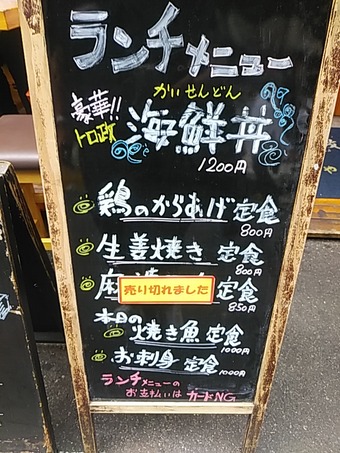 ランチメニュー
豪華!!
トロ政
かいせんどん
海鮮丼
1200円
鶏のからあげ定食
800円
生姜焼き 定食
800円
売り切れました
定食
850円
本日の
焼き魚 定食
1000円
お刺身 定食
1000円
ランチメニューの
お支払いは カードNG